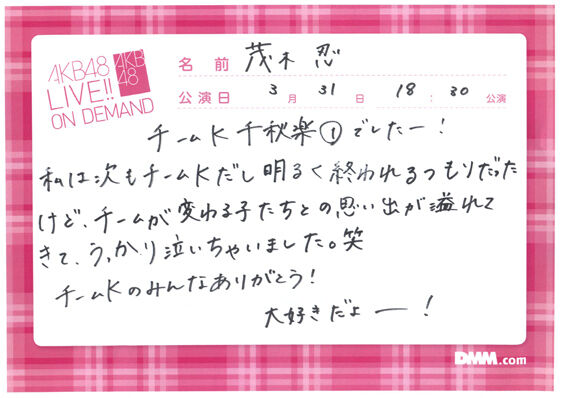 AKB48
LIVE!!
ON DEMAND
AKB
48
名前 茂木 忍
公演日 3月31日 18:30公演
チームK 千秋楽①でしたー!
私は次もチームKだし明るく終われるつもりだった
けど、チームが変わる子たちとの思い出が溢れて
きて、うっかり泣いちゃいました。笑
チームKのみんなありがとう!
大好きだよー!
DMM.com